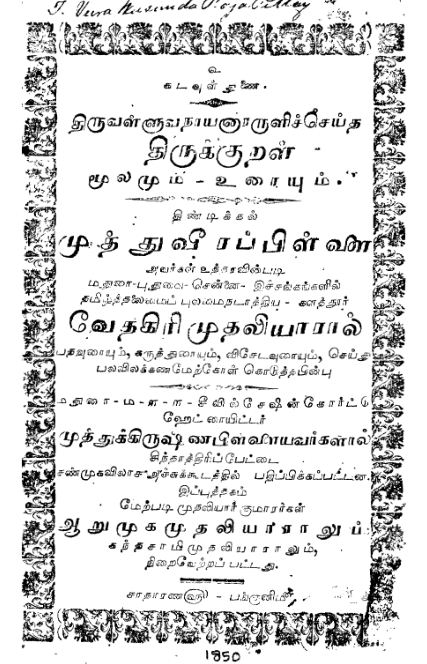 உ
கடவுள் துணை.
திருவள்ளுவநாயனாரருளிச்செய்த
திருக்குறள்
மூலமும் - உரையும்.
திண்டிக்கல்
முத்துவீரப்பிள்ளை
அவர்கள் உத்தரவின்படி
மதுரை-புதுவை-சென்னை- இச்சங்கங்களில்
தமிழ்த்தலைமைப் புலமைநடாத்திய - களத்தூர்
வேதகிரிமுதலியாரால்
பதவுரையும், கருத்துரையும், விசேடவுரையும், செய்து
பலவிலக்கணமேற்கோள் கொடுத்தபின்பு
மதுரை-ம-ள-ள-சிவில்சேஷன்கோர்ட்டு
ஹேட் ரைட்டர்
முத்துக்கிருஷ்ணபிள்ளையவர்களால்
சிந்தாத்திரிப்பேட்டை
சண்முகவிலாச அச்சுக்கூடத்தில் பதிப்பிக்கப்பட்டன.
இப்புத்தகம்
மேற்படி முதலியார் குமாரர்கள்
ஆறுமுகமுதலியாராலும்
கந்தசாமிமுதலியாராலும்,
நிறைவேற்றப்பட்டது.
சாதாரணளு - பங்குனிமீ
1850